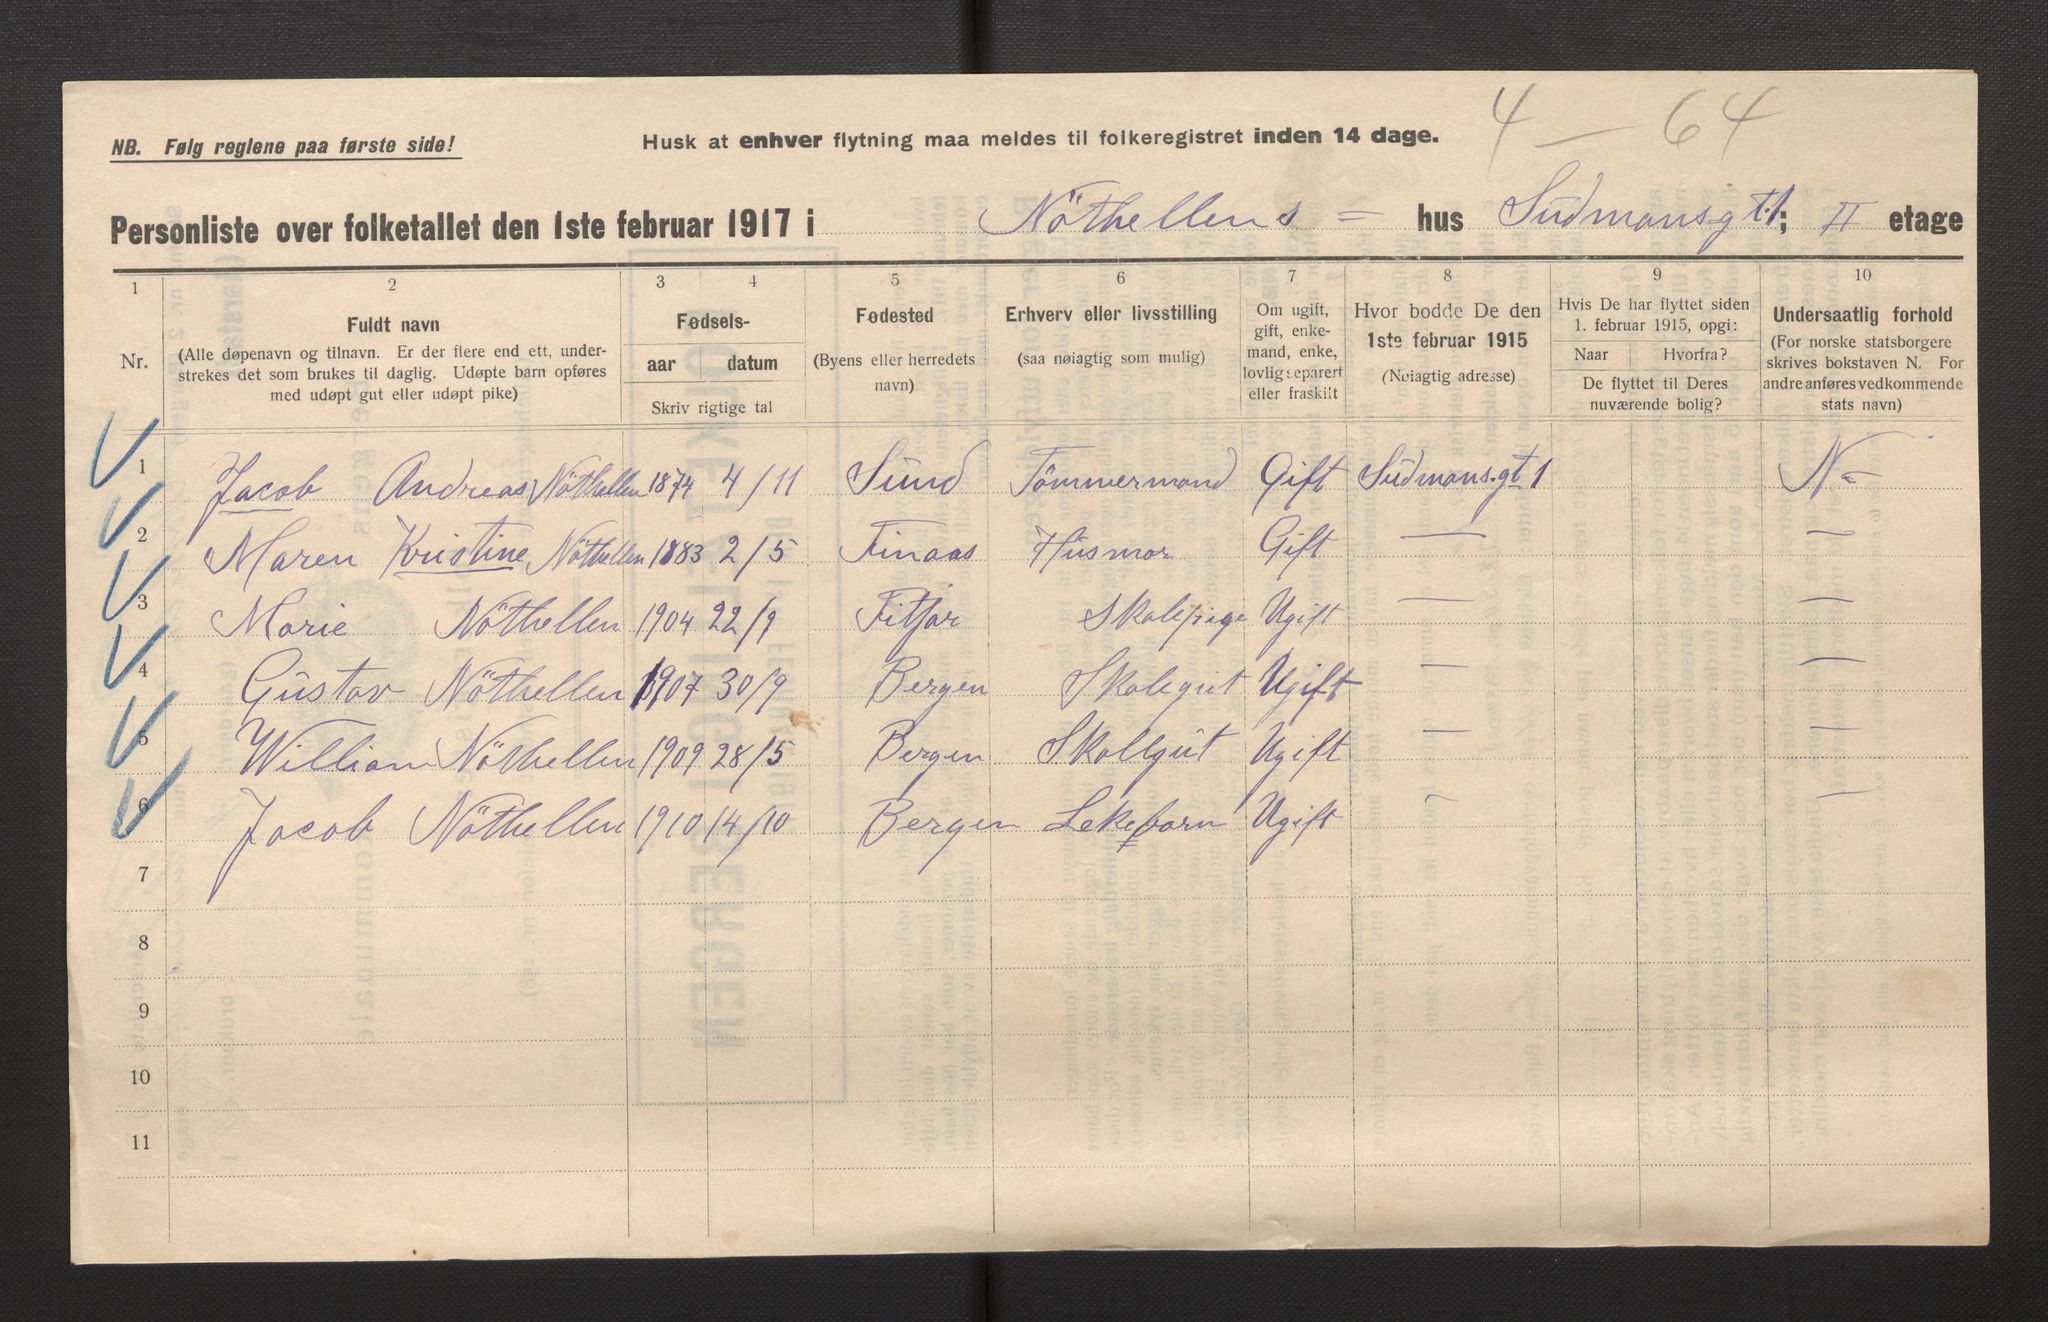 4 — 64
NB. Følg reglene paa første side!
Husk at enhver flytning maa meldes til folkeregistret inden 14 dage.
Personliste over folketallet den 1ste februar 1917 i Nöthellens = hus Sudmansgt. 1; II etage
1 2 3 4 5 6 7 8 9 10
Nr.
Fuldt navn
(Alle døpenavn og tilnavn. Er der flere end ett, under-
strekes det som brukes til daglig. Udøpte barn opføres
med udøpt gut eller udøpt pike)
Fødsels-
aar datum
Skriv rigtige tal
Fødested
(Byens eller herredets
navn)
Erhverv eller livsstilling
(saa nøiagtig som mulig)
Om ugift,
gift, enke-
mand, enke,
lovlig separert
eller fraskilt
Hvor bodde De den
1ste februar 1915
(Nøiagtig adresse)
Hvis De har flyttet siden
1. februar 1915, opgi:
Naar Hvorfra?
De flyttet til Deres
nuværende bolig?
Undersaatlig forhold
(For norske statsborgere
skrives bokstaven N. For
andre anføres vedkommende
stats navn)
1 Jacob Andreas Nöthellen 1874 4/11 Sund Tömmermand Gift Sudmansgt 1 N-
2 Maren Kristine Nöthellen 1883 2/5 Finaas Husmor Gift — —
3 Marie Nöthellen 1904 22/9 Fitjar Skolepige Ugift — —
4 Gustav Nöthellen 1907 30/9 Bergen Skolegut Ugift — —
5 William Nöthellen 1909 28/5 Bergen Skolegut Ugift — —
6 Jacob Nöthellen 1910 14/10 Bergen Lekebarn Ugift - —
7
8
9
10
11